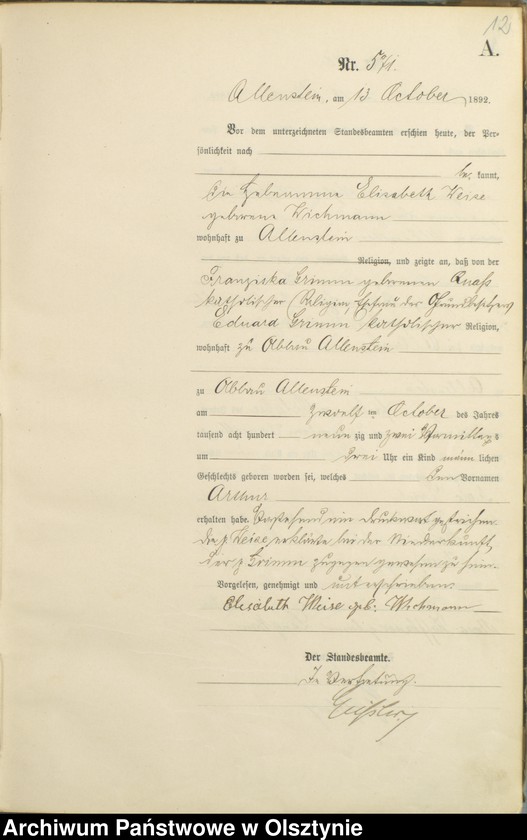 12
A.
Nr. 571.
Allenstein, am 13 October 1892.
Vor dem unterzeichneten Standesbeamten erschien heute, der Per-
sönlichkeit nach
be kannt,
die Hebeamme Elisabeth Weise
geborene Wichmann
wohnhaft zu Allenstein
Religion, und zeigte an, daß von der
Franziska Grimm geborenen Quass
katholischer Religion, Ehefrau des Grundbesitzers
Eduard Grimm katholischer Religion,
wohnhaft zu Abbau Allenstein
zu Abbau Allenstein
am zwoelf ten October des Jahres
tausend acht hundert neun zig und zwei Vormittags
um drei Uhr ein Kind männ lichen
Geschlechts geboren worden sei, welches den Vornamen
Arthur
erhalten habe. Vorstehend ein Druckwort gestrichen.
Die p. Weise erklärte bei der Niederkunft
der p Grimm zugegen gewesen zu sein.
Vorgelesen, genehmigt und unterschrieben:
Elisabeth Weise geb: Wichmann
Der Standesbeamte.
In Vertretung.
Archiwum Państwowe w Olsztynie